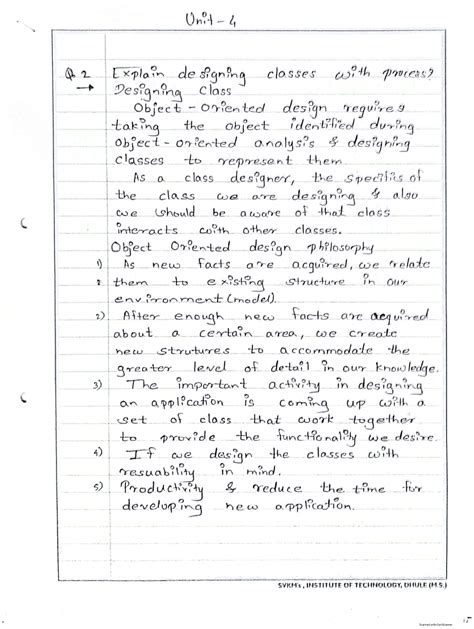 Unit - 4
Q.2 Explain designing classes with process?
→ Designing Class
Object - Oriented design requires
taking the object identified during
object - oriented analysis & designing
classes to represent them.
As a class designer, the specifics of
the class we are designing & also
we should be aware of that class
interacts with other classes.
Object Oriented design philosorphy
1) As new facts are acquired, we relate
2 them to existing structure in our
environment (model).
2) After enough new facts are acquired
about a certain area, we create
new strutures to accommodate the
greater level of detail in our knowledge.
3) The important activity in designing
an application is coming up with a
set of class that work together
to provide the functionality we desire.
4) If we design the classes with
resuability in mind.
5) Productivity & reduce the time for
developing new application.
SVKM's, INSTITUTE OF TECHNOLOGY, DHULE (M.S.)